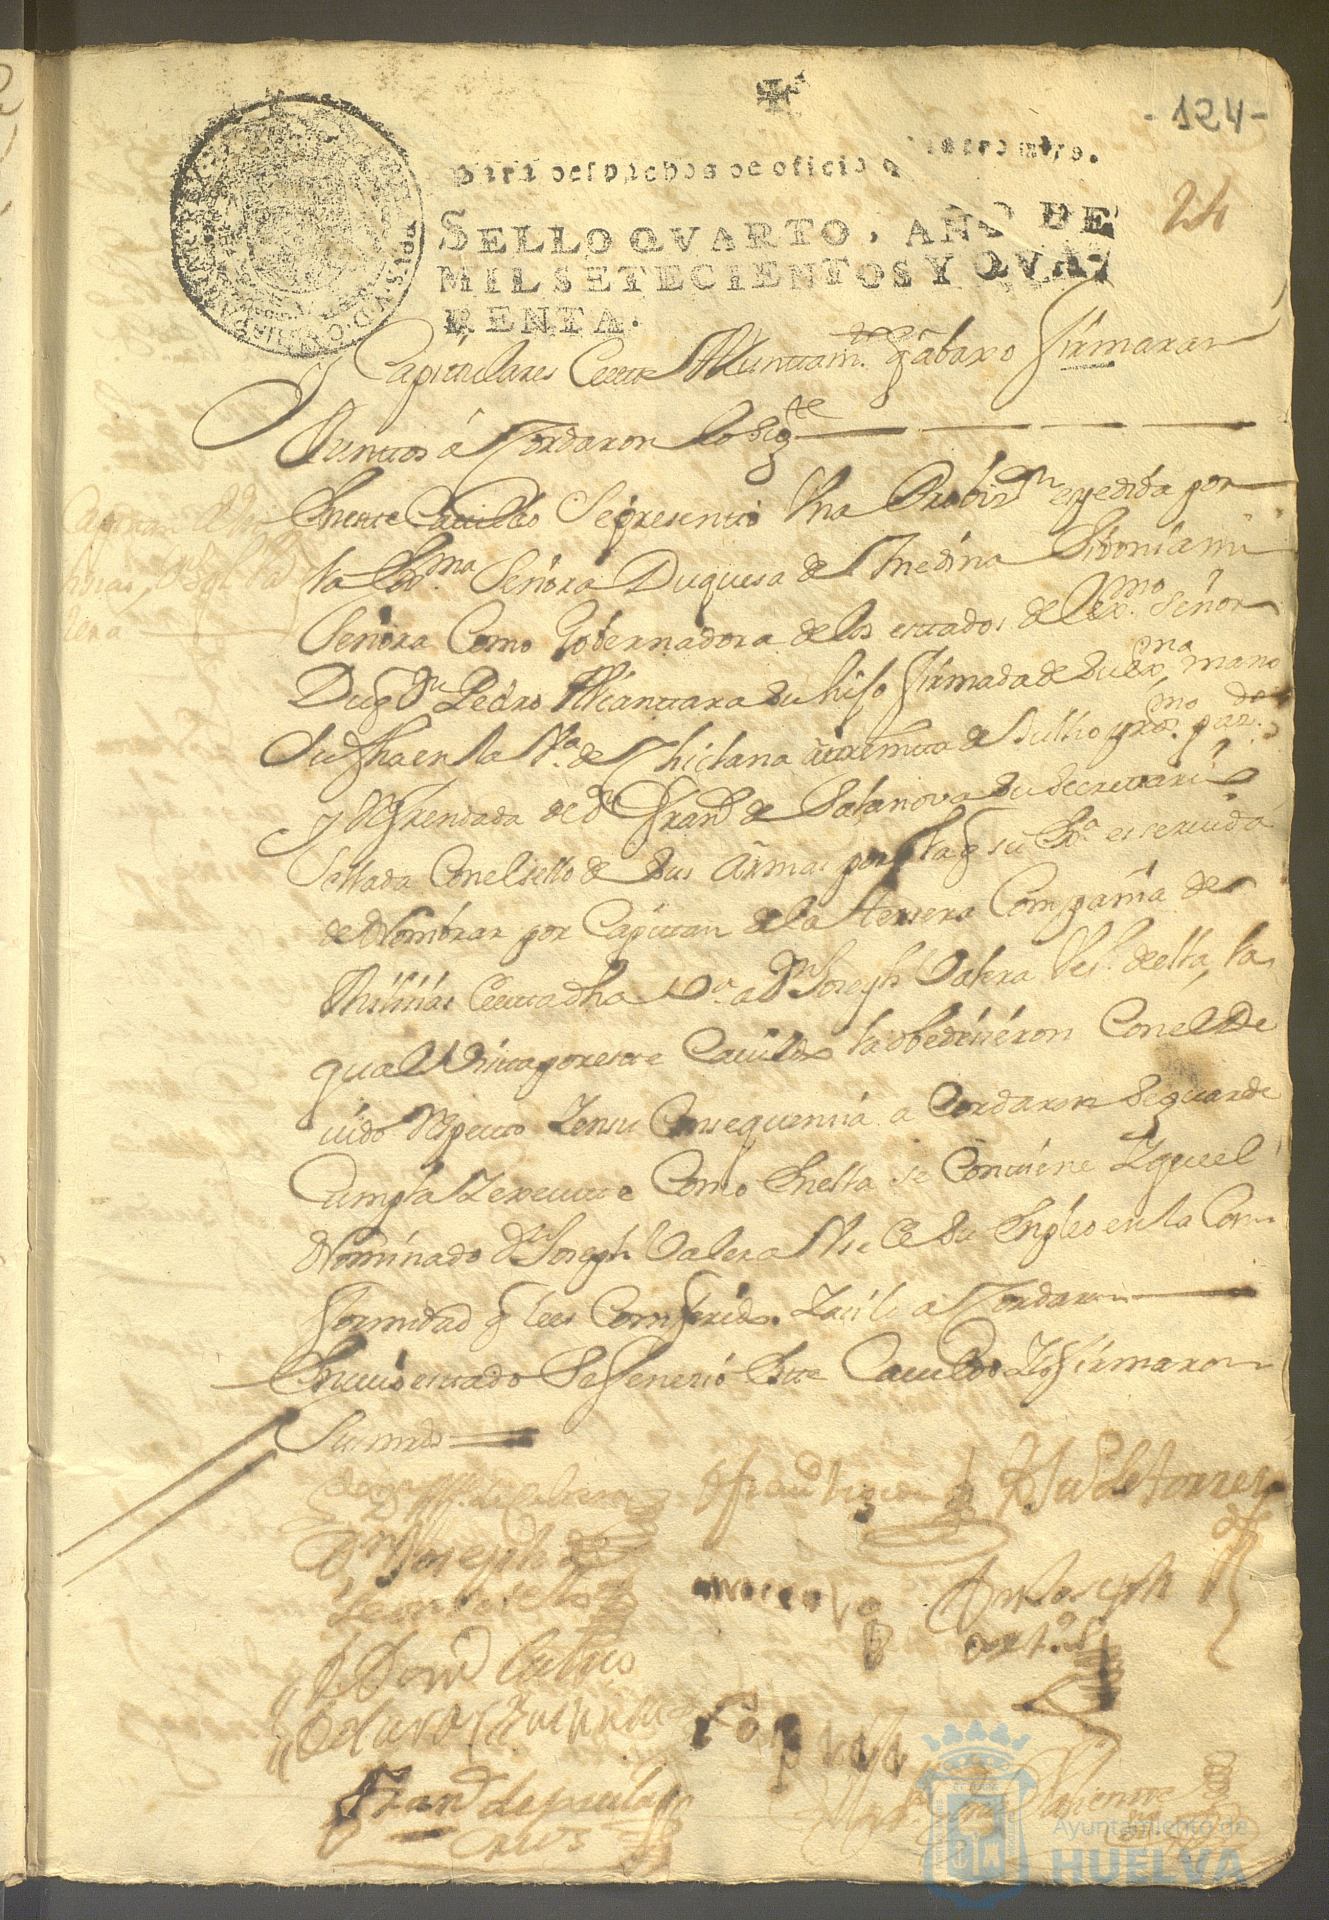 -124-
24
para despachos de oficio q
SELLO QVARTO, AÑO DE
MIL SETECIENTOS Y QVA-
RENTA.
Capitulares de este Ayuntam.to q abaxo firmaran
Juntos acordaron lo sig.te
En este Cauildo Se presentto Vna Probis.n expedida por
la Ex.ma Señora Duquesa de Medina Sidonia mi
Señora Como Gobernadora de los estados del ex.mo Señor
Duq D.n Pedro Alcantara su hijo firmada de su ex.ma mano
Su fha en la V.a de Chiclana a treinta de Jullio pro.mo pas.do
y Refrendada de D.n Fran.co de Casanova su Secretario
Sellada Con el sello de sus Armas por la q su Ex.a es seruida
de Nombrar por Capitan de la tersera Compañia de
Milisias de esta dha V.a a D.n Joseph Valera Vez.o de ella, la
qual Vista por este Cauildo la obedesieron Con el de
uido Respecto Y en su Consequensia acordaron Se guarde
Cumpla Y execute Como En ella se Contiene Y que el
Nominado D.n Joseph Valera Vse de Su Empleo en la Con
formidad q le es Conferido. Y asi lo acordaron
En cuio estado Se feneció Este Cauildo Y lo firmaron
Sus mrds
Capitan de Mi
lisias, D.n Jph Va
lera
D.n Joseph de
D.n Joseph
Fran.co de paula